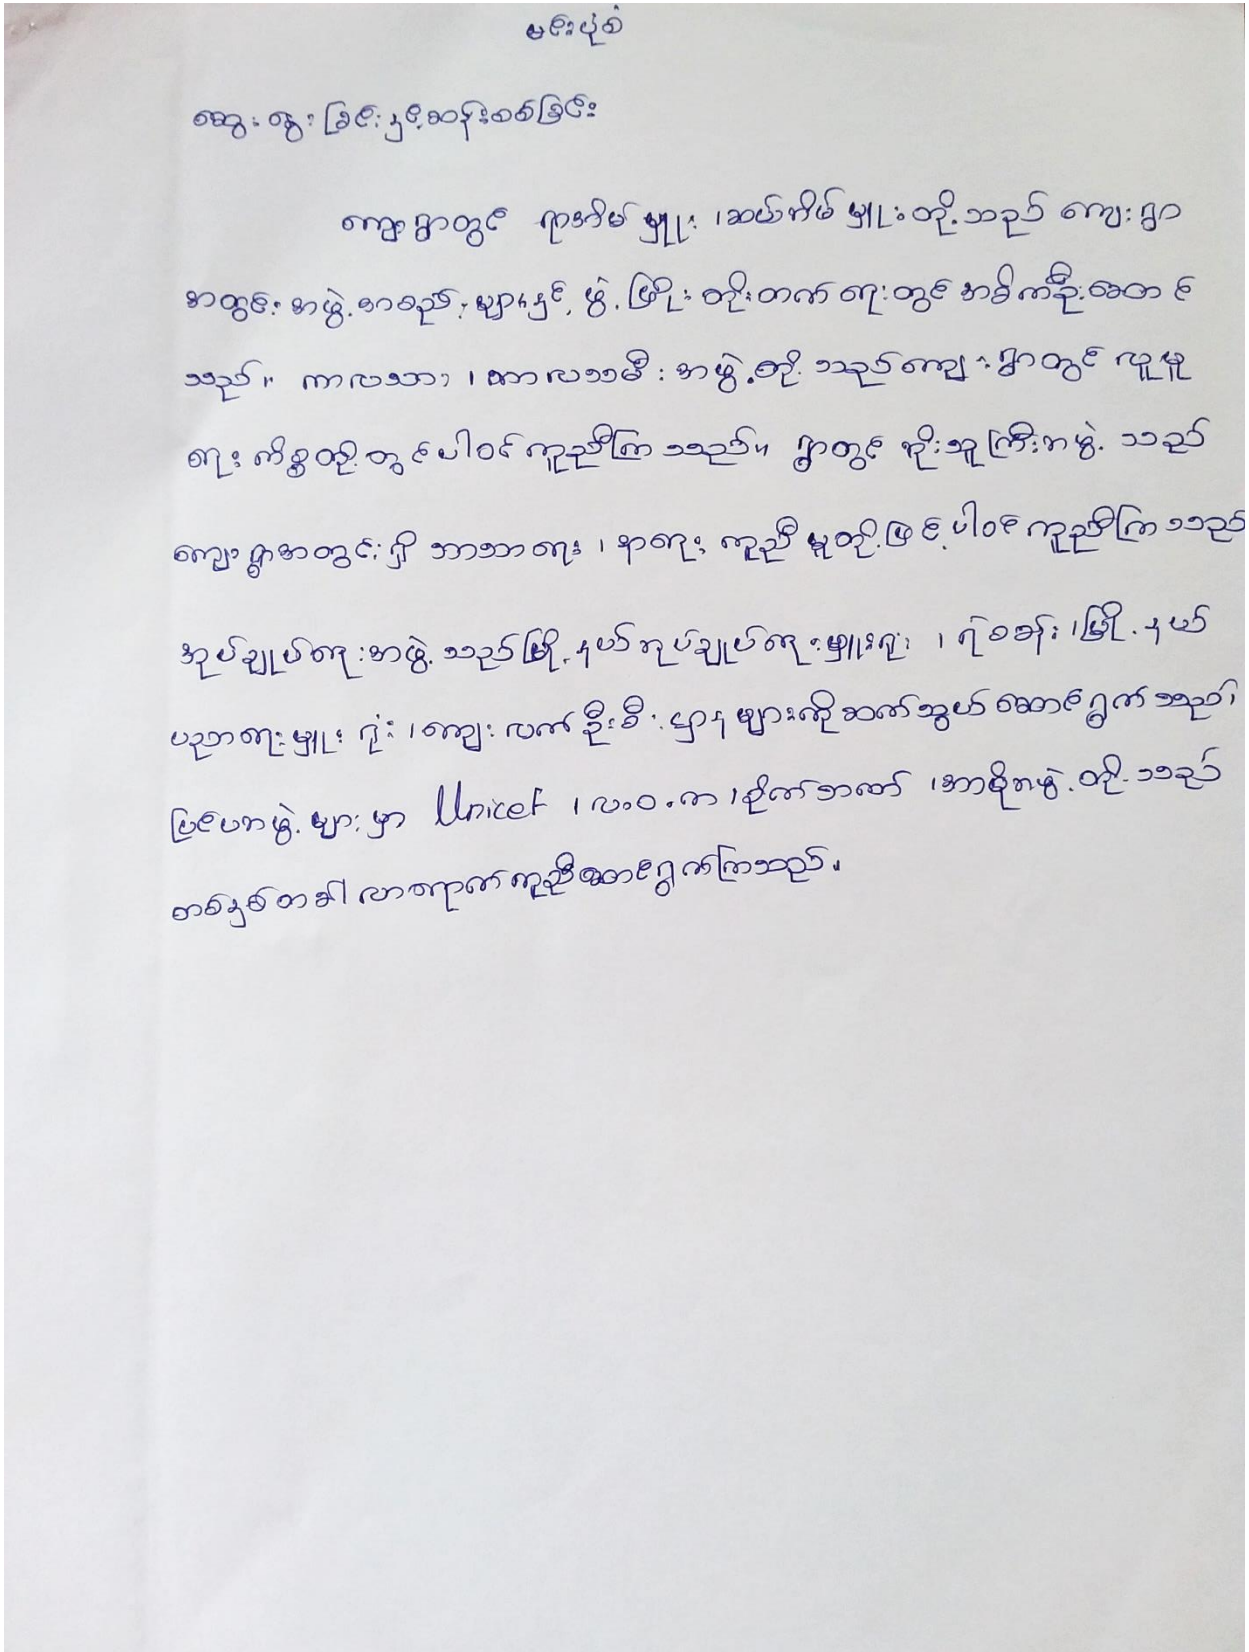 မင်းပုံစံ
ဆွေးနွေးခြင်းနှင့်ဆန်းစစ်ခြင်း
ကျေးရွာတွင် ရာအိမ်မှူး ၊ဆယ်အိမ်မှူးတို့သည် ကျေးရွာ
အတွင်းအဖွဲ့အစည်းများနှင့်ဖွံ့ဖြိုးတိုးတက်ရေးတွင်အဓိကဦးဆောင်
သည်။ ကာလသား ၊ကာလသမီးအဖွဲ့တို့သည်ကျေးရွာတွင်လူမှု
ရေးကိစ္စတို့တွင်ပါဝင်ကူညီကြသည်။ ရွာတွင်ကိုးသူကြီးအဖွဲ့သည်
ကျေးရွာအတွင်းရှိ ဘာသာရေး ၊နာရေးကူညီမှုတို့ဖြင့်ပါဝင်ကူညီကြသည်
အုပ်ချုပ်ရေးအဖွဲ့သည်မြို့နယ်အုပ်ချုပ်ရေးမှူးရုံး ၊ရဲစခန်း ၊မြို့နယ်
ပညာရေးမှူးရုံး ၊ကျေးလက်ဦးစီးဌာနများကိုဆက်သွယ်ဆောင်ရွက်သည်၊
ပြင်ပအဖွဲ့များမှာ Unicef ၊လ.ဝ.က ၊စိုက်ဘဏ် ၊အာစိုအဖွဲ့တို့သည်
တစ်နှစ်တခါလာရောက်ကူညီဆောင်ရွက်ကြသည်။